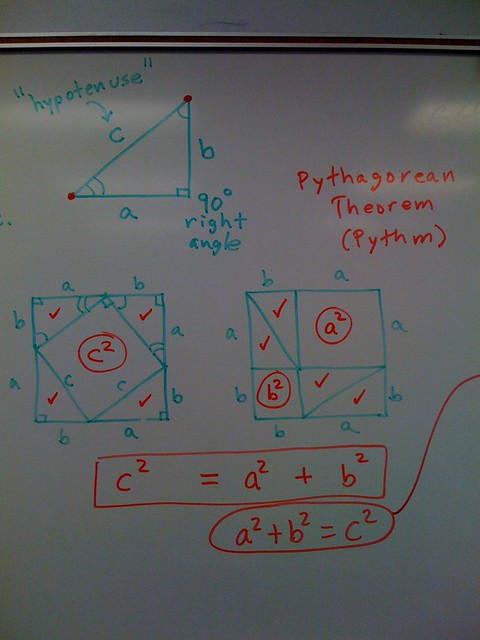 "hypotenuse"
c
b
a
90°
right
angle
Pythagorean
Theorem
(Pythm)
a b
b a
c²
a c c b
b a
b a
a a² a
b b² b
b a
c² = a² + b²
a² + b² = c²